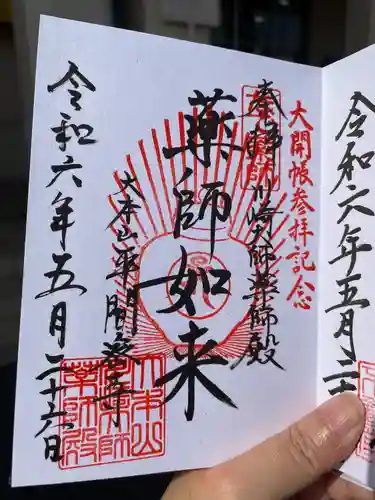 大開帳参拝記念
奉拝
川崎大師薬師殿
薬師如来
大本山平間寺
令和六年五月二十六日
令和六年五月二